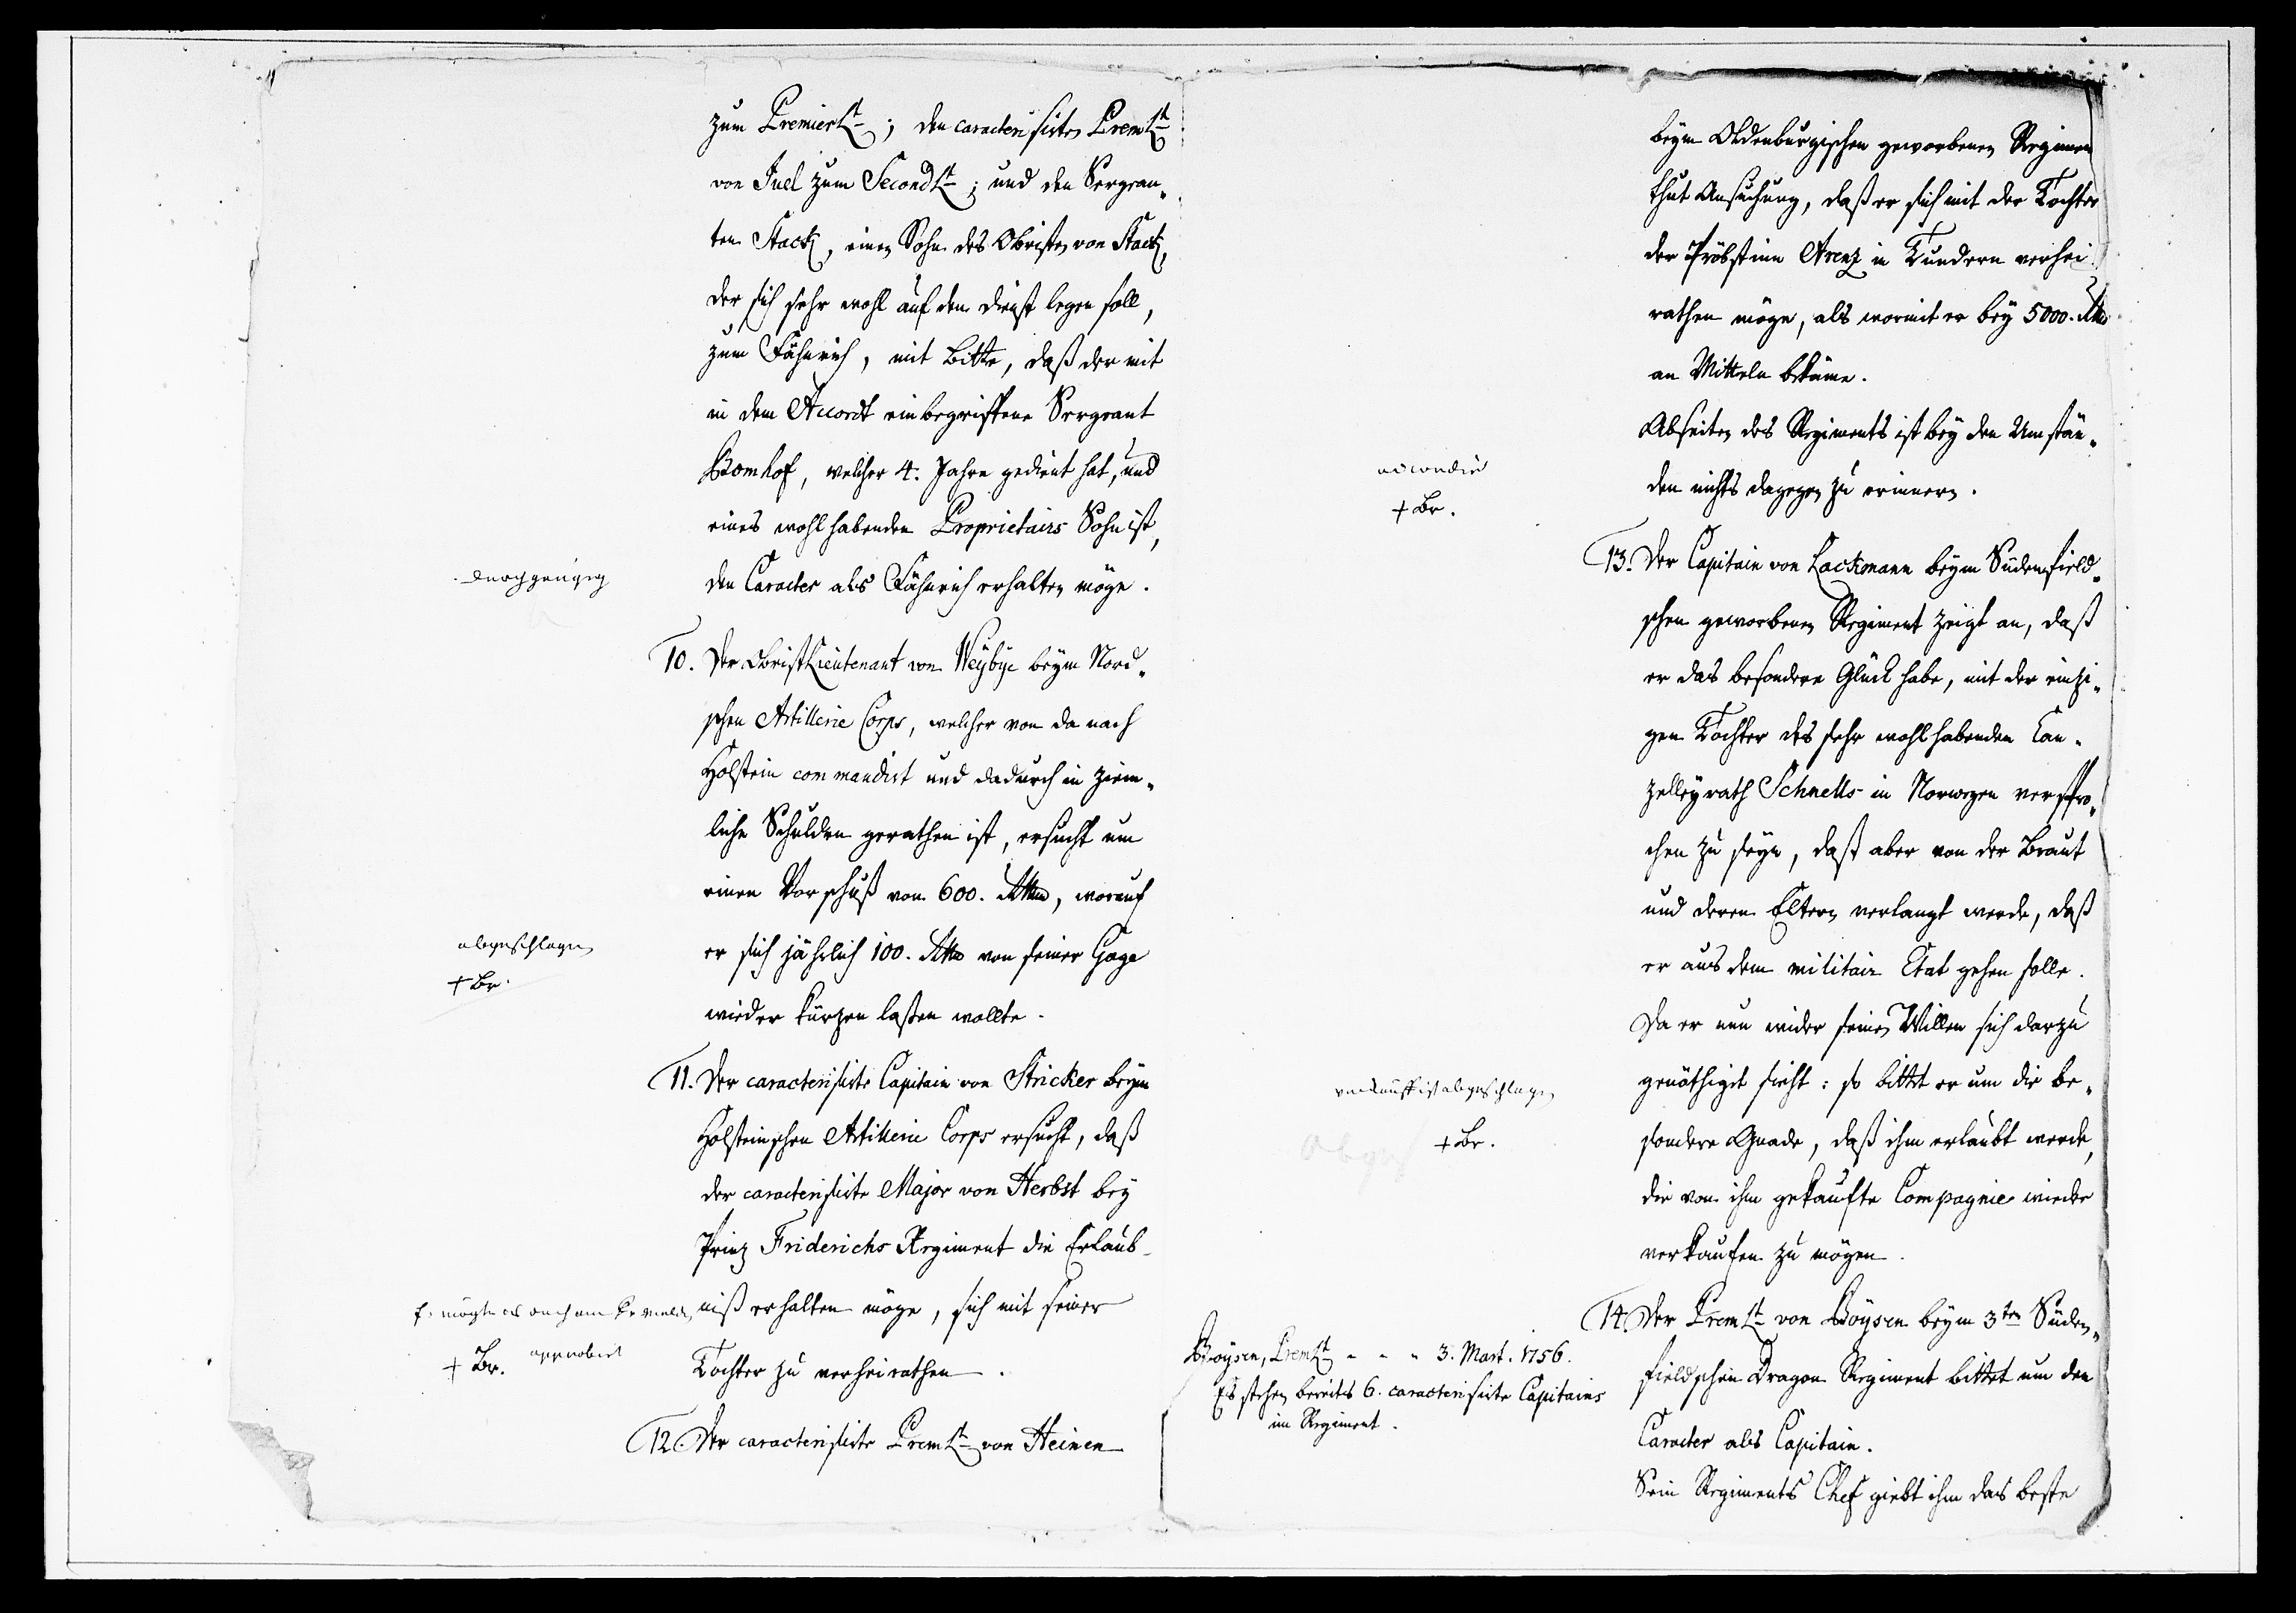 zum PremierLt; den caracterisirten PremLt
von Juel zum SecondLt; und den Sergean„
ten Stack, einen Sohn des Obristen von Stack,
der sich sehr wohl auf den Dienst legen soll,
zum Fähnrich, mit Bitte, daß der mit
in dem Accord einbegriffene Sergeant
Bomhof, welcher 4. Jahre gedient hat, und
eines wohlhabenden Proprietairs Sohn ist,
den Caracter als Fähnrich erhalten möge.
10. Der ObristLieutenant von Weÿbÿe beÿm Nord„
schen Artillerie Corps, welcher von da nach
Holstein commandirt und dadurch in ziem„
liche Schulden gerathen ist, ersucht um
einen Vorschuß von 600. Rthlr, worauf
abgeschlagen
+ Br.
er sich jährlich 100. Rthlr von seiner Gage
wieder kürzen laßen wollte.
11. Der caracterisirte Capitain von Stricker beÿm
Holsteinschen Artillerie Corps ersucht, daß
der caracterisirte Major von Herbst beÿ
Prinz Friderichs Regiment die Erlaub„
niß erhalten möge, sich mit seiner
approbirt
+ Br.
Tochter zu verheirathen.
12. Der caracterisirte PremLt von Heinen
beÿm Oldenburgischen geworbenen Regimen
thut Ansuchung, daß er sich mit der Tochter
der Pröbstinn Arenz in Tundern verhei„
rathen möge, als womit er beÿ 5000. Rthlr
an Mitteln bekäme.
Abseiten des Regiments ist beÿ den Umstän„
den nichts dagegen zu erinnern.
+ Br.
13. Der Capitain von Lackmann beÿm Südenfield„
schen geworbenen Regiment zeigt an, daß
er das besondere Glück habe, mit der einzi„
gen Tochter des sehr wohlhabenden Can„
zelleÿrath Schnells in Norwegen verspro„
chen zu seÿn, daß aber von der Braut
und deren Eltern verlangt werde, daß
er aus dem militair Etat gehen solle.
Da er nun wider seinen Willen sich darzu
genöthiget sieht: so bittet er um die be„
sondere Gnade, daß ihm erlaubt werde,
abgeschlagen
+ Br.
die von ihm gekaufte Compagnie wieder
verkaufen zu mögen.
14. Der PremLt von Boÿsen beÿm 3ten Süden„
fieldschen Dragon Regiment bittet um den
Caracter als Capitain.
Boÿsen, PremLt - - - 3. Mart. 1756.
Es stehen bereits 6. caracterisirte Capitains
im Regiment.
Sein Regiments Chef giebt ihm das beste